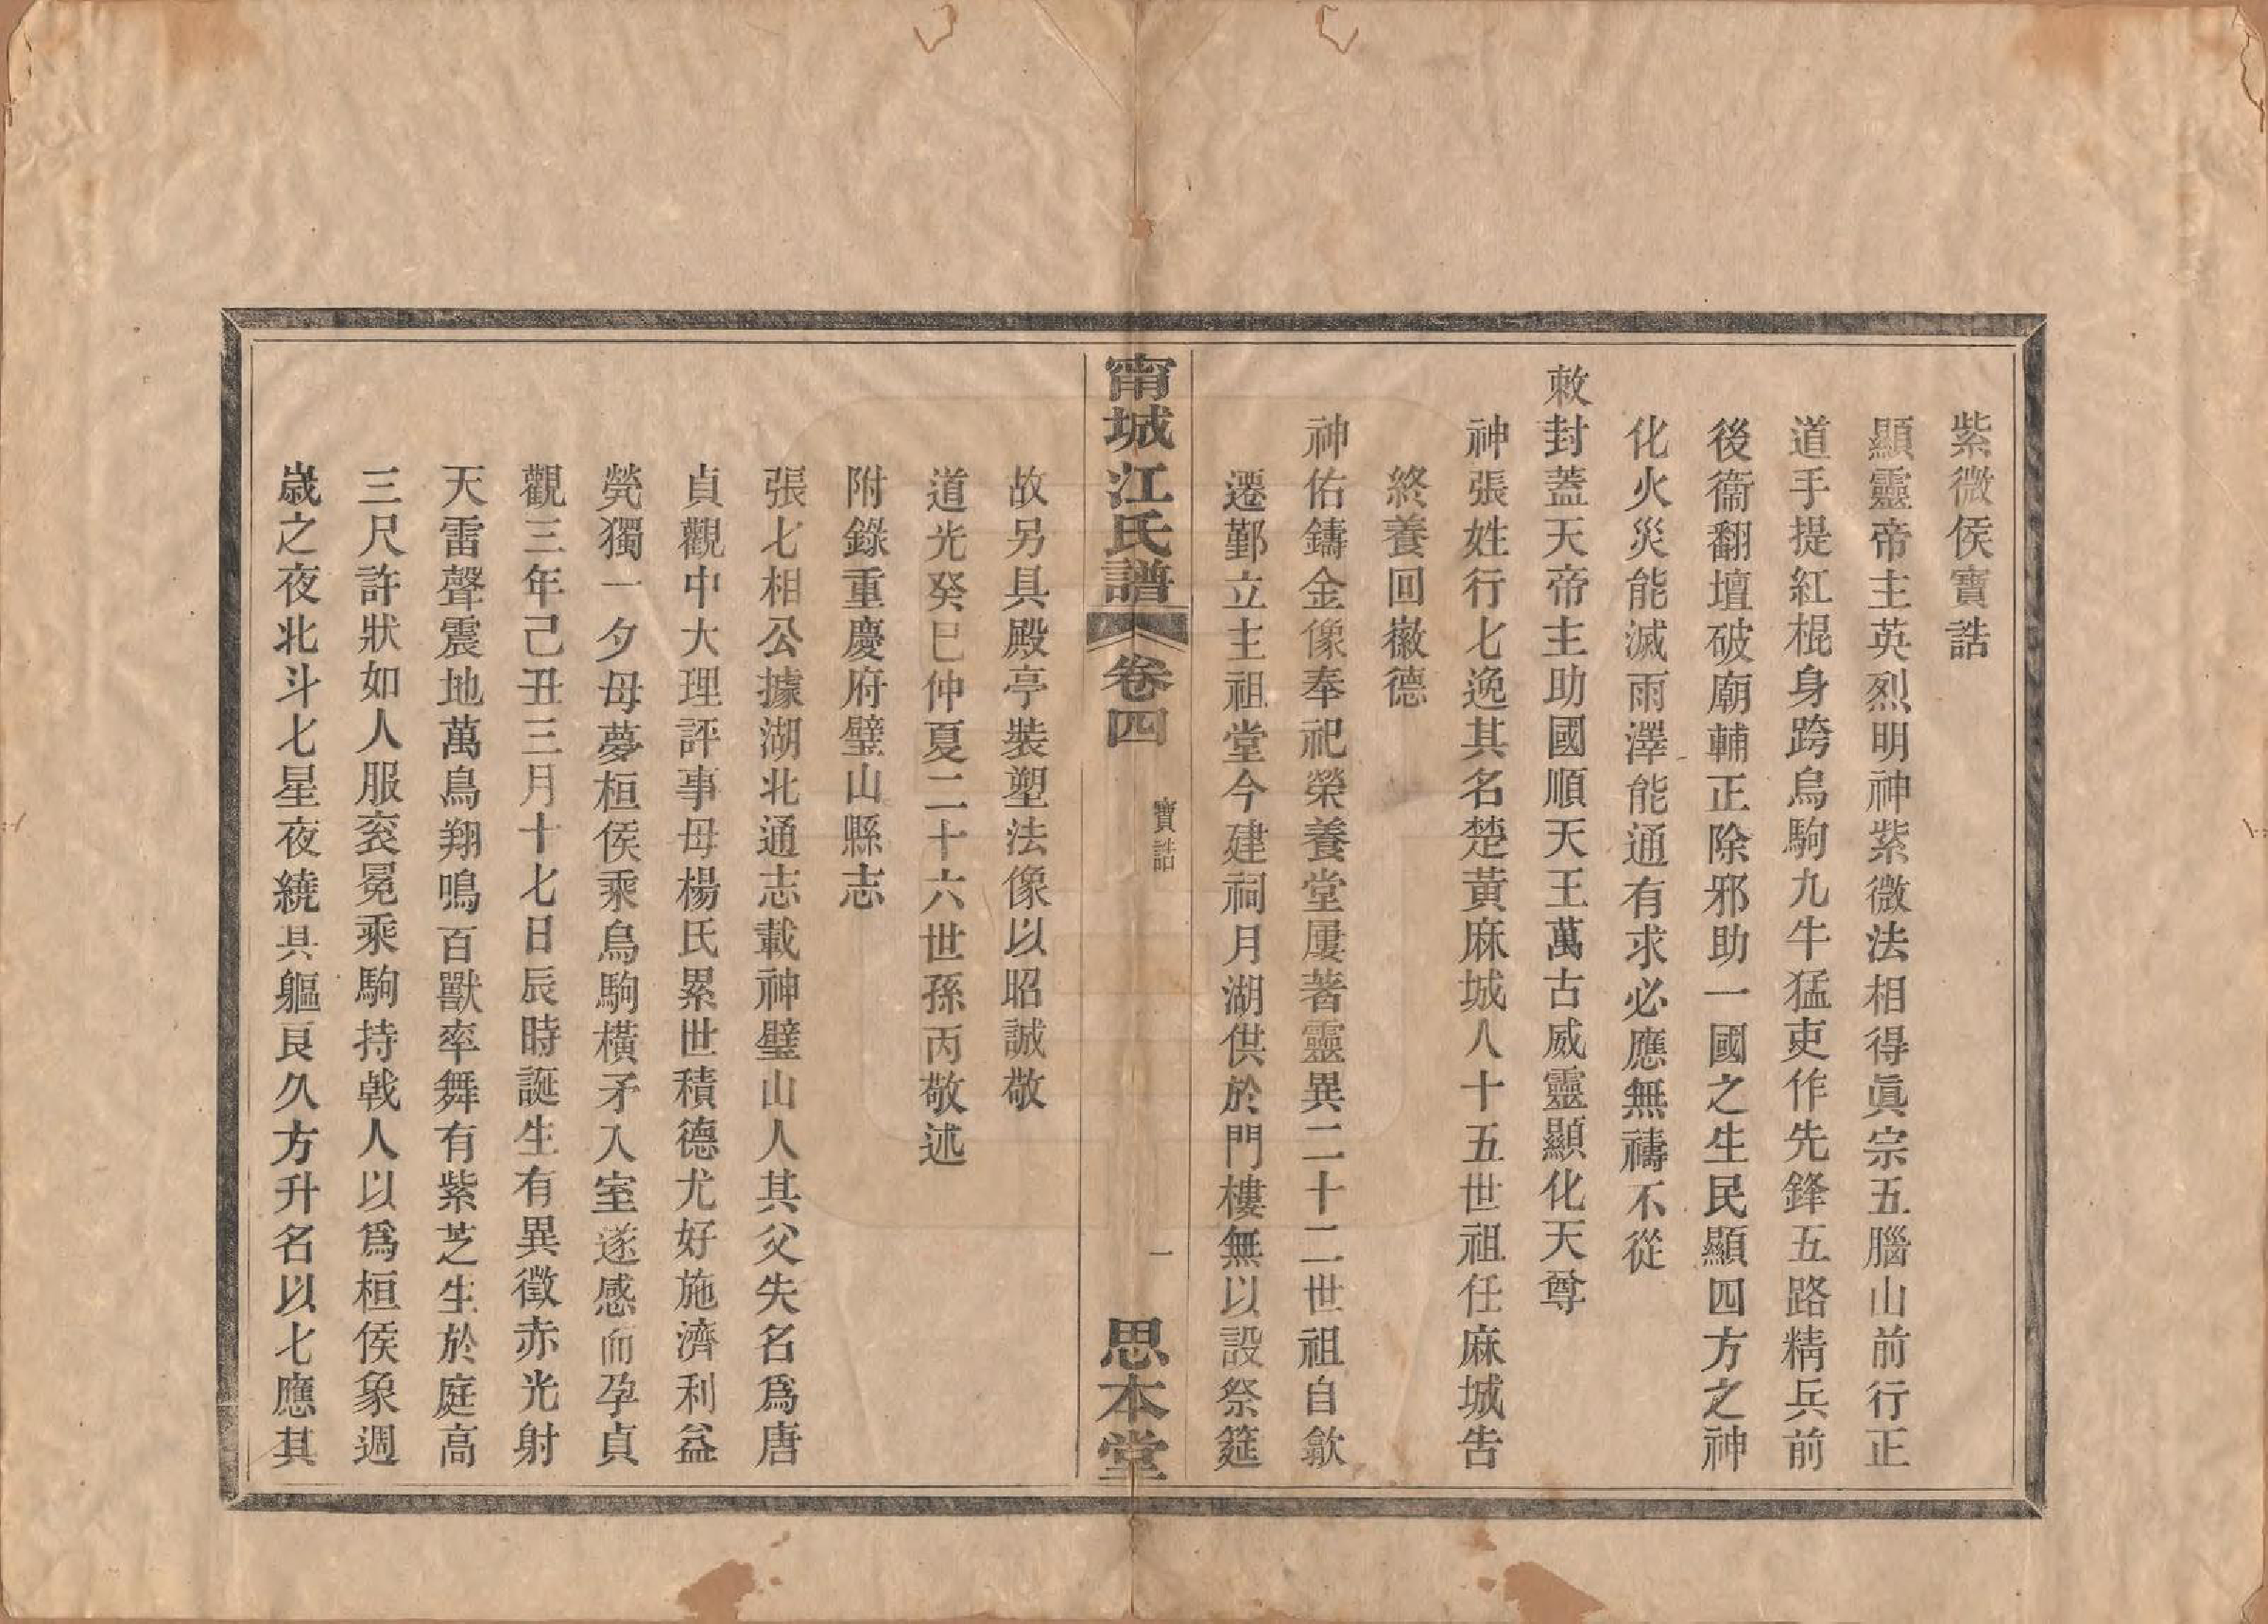 紫微侯寶誥
顯靈帝主英烈明神紫微法相得眞宗五腦山前行正
道手提紅棍身跨烏駒九牛猛吏作先鋒五路精兵前
後衞翻壇破廟輔正除邪助一國之生民顯四方之神
化火災能滅雨澤能通有求必應無禱不從
敕封蓋天帝主助國順天王萬古威靈顯化天尊
神張姓行七逸其名楚黃麻城人十五世祖任麻城告
終養回徽德
神佑鑄金像奉祀榮養堂屢著靈異二十二世祖自歙
遷鄞立主祖堂今建祠月湖供於門樓無以設祭筵
甯城江氏譜
卷四
寶誥
一
思本堂
故另具殿亭裝塑法像以昭誠敬
道光癸巳仲夏二十六世孫丙敬述
附錄重慶府璧山縣志
張七相公據湖北通志載神璧山人其父失名爲唐
貞觀中大理評事母楊氏累世積德尤好施濟利益
煢獨一夕母夢桓侯乘烏駒橫矛入室遂感而孕貞
觀三年己丑三月十七日辰時誕生有異徵赤光射
天雷聲震地萬鳥翔鳴百獸率舞有紫芝生於庭高
三尺許狀如人服袞冕乘駒持戟人以爲桓侯象週
歲之夜北斗七星夜繞具軀良久方升名以七應其